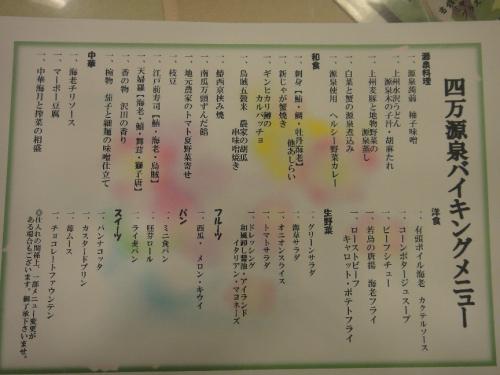 四万源泉バイキングメニュー
源泉料理
一、源泉蒟蒻　柚子味噌
一、上州水沢うどん
源泉水の子汁・胡麻だれ
一、上州麦豚と地物野菜の
源泉蒸し
一、白菜と蟹の源泉煮込み
一、源泉使用　ヘルシー野菜カレー
和食
一、刺身【鮪・鯛・牡丹海老】
他あしらい
一、新じゃが蟹焼き
一、ギンヒカリ鱒の
カルパッチョ
一、烏賊五穀米　農家の胡瓜
串味噌焼き
一、鰆西京挟み焼
一、南瓜万頭ずんだ餡
一、地元農家のトマト夏野菜寄せ
一、枝豆
一、江戸前寿司【鮪・海老・烏賊】
一、天婦羅【海老・鱚・舞茸・獅子唐】
一、香の物　沢田の香り
一、椀物　茄子と細麺の味噌仕立て
中華
一、海老チリソース
一、マーボー豆腐
一、中華海月と搾菜の相盛
洋食
一、有頭ボイル海老　カクテルソース
一、コーンポタージュスープ
一、ビーフシチュー
一、若鳥の唐揚　海老フライ
一、ローストビーフ
キャロット・ポテトフライ
生野菜
一、グリーンサラダ
一、海藻サラダ
一、オニオンスライス
一、トマトサラダ
一、ドレッシング
和風卸し醤油・アイランド
イタリアン・マヨネーズ
フルーツ
一、西瓜・メロン・キウイ
パン
一、ミニ食パン
一、胚芽ロール
一、ライ麦パン
スイーツ
一、パンナコッタ
一、カスタードプリン
一、苺ムース
一、チョコレートファウンテン
◎仕入れの関係上、一部メニュー変更が
ある場合もございます。御了承下さいませ。